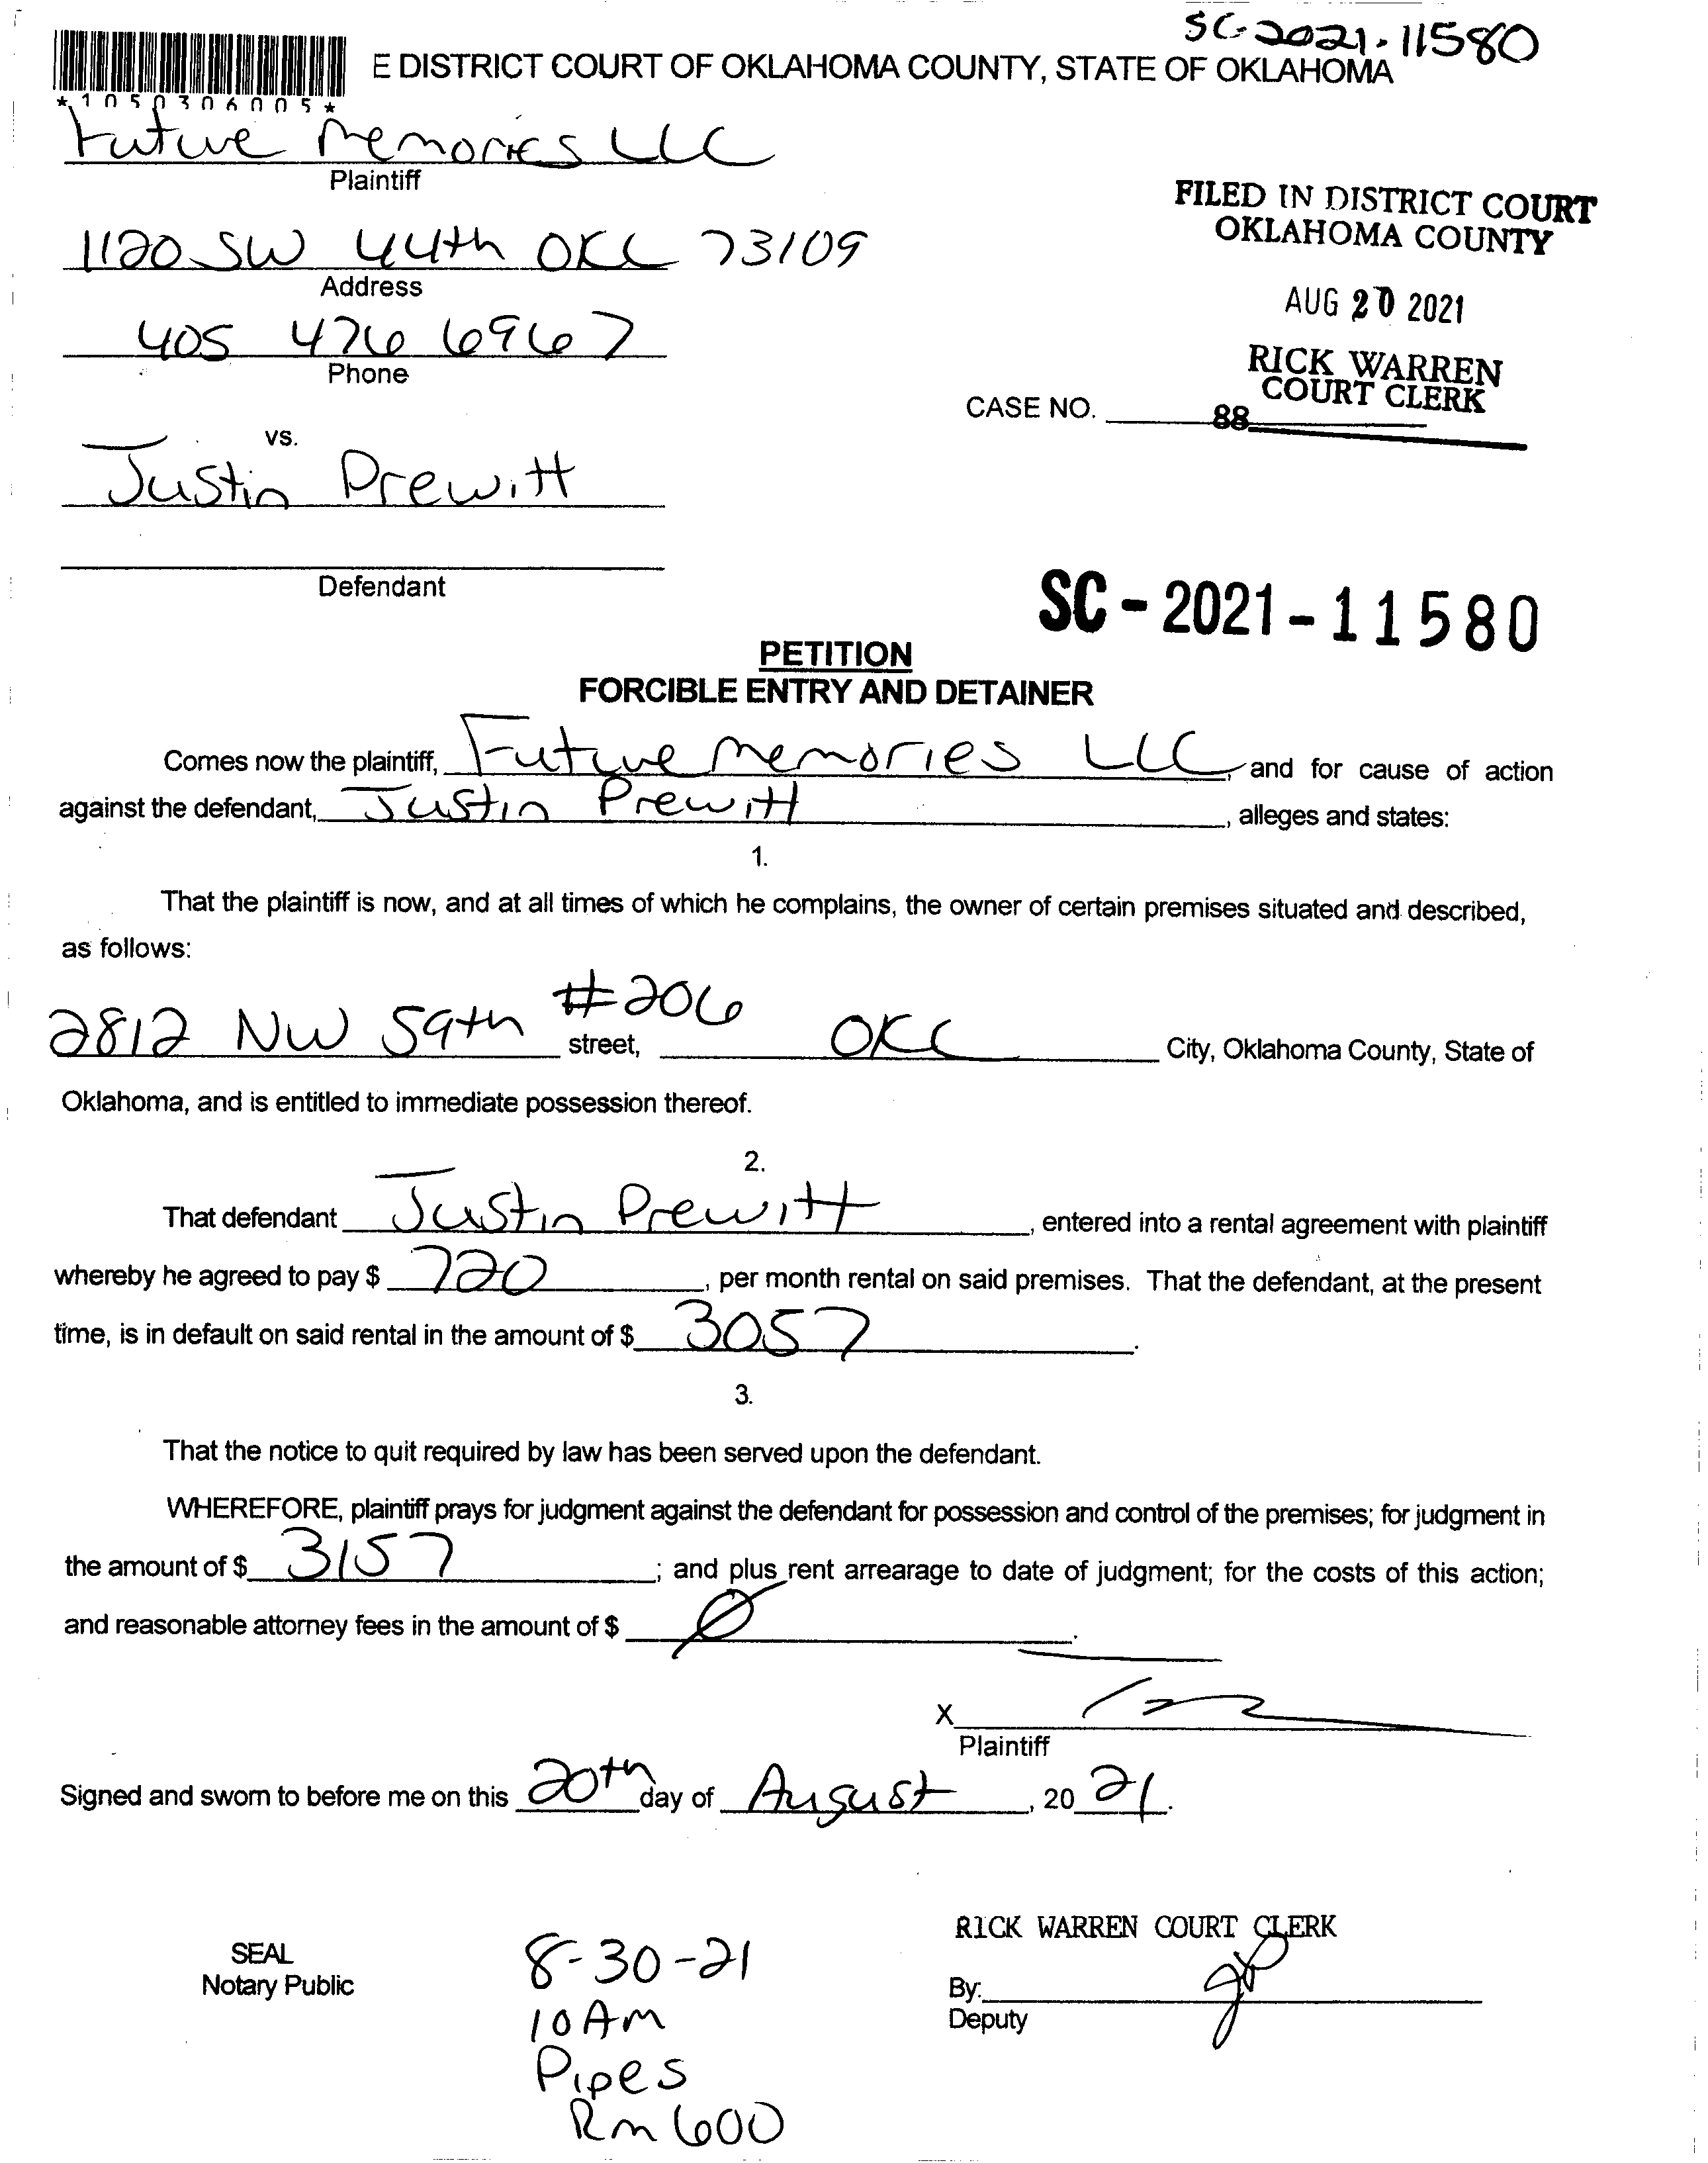 SC-2021-11580
E DISTRICT COURT OF OKLAHOMA COUNTY, STATE OF OKLAHOMA
*1050306005*
Future Memories LLC
Plaintiff
FILED IN DISTRICT COURT
OKLAHOMA COUNTY
1120 SW 44th OKC 73109
Address
AUG 20 2021
405 476 6967
Phone
RICK WARREN
COURT CLERK
CASE NO.
88
vs.
Justin Prewitt
Defendant
SC - 2021 - 11580
PETITION
FORCIBLE ENTRY AND DETAINER
Comes now the plaintiff, Future Memories LLC, and for cause of action
against the defendant, Justin Prewitt, alleges and states:
1.
That the plaintiff is now, and at all times of which he complains, the owner of certain premises situated and described,
as follows:
2812 NW 59th #206 street, OKC City, Oklahoma County, State of
Oklahoma, and is entitled to immediate possession thereof.
2.
That defendant Justin Prewitt, entered into a rental agreement with plaintiff
whereby he agreed to pay $ 720, per month rental on said premises. That the defendant, at the present
time, is in default on said rental in the amount of $ 3057.
3.
That the notice to quit required by law has been served upon the defendant.
WHEREFORE, plaintiff prays for judgment against the defendant for possession and control of the premises; for judgment in
the amount of $ 3157; and plus rent arrearage to date of judgment; for the costs of this action;
and reasonable attorney fees in the amount of $ Ø.
X
Plaintiff
Signed and sworn to before me on this 20th day of August, 20 21.
RICK WARREN COURT CLERK
SEAL
Notary Public
By:
Deputy
8-30-21
10 AM
Pipes
Rm 600